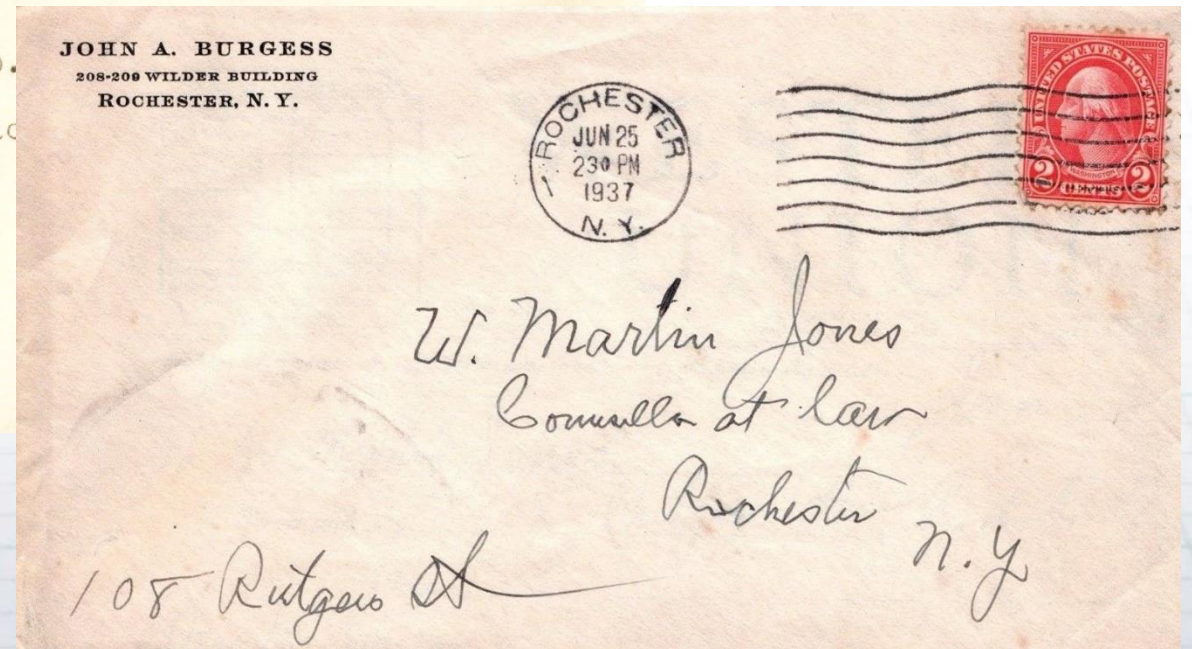 JOHN A. BURGESS
208-209 WILDER BUILDING
ROCHESTER, N. Y.
ROCHESTER
JUN 25
230 PM
1937
N. Y.
UNITED STATES POSTAGE
WASHINGTON
2 CENTS 2
W. Martin Jones
Counsellor at law
Rochester
N.Y
108 Rutgers St